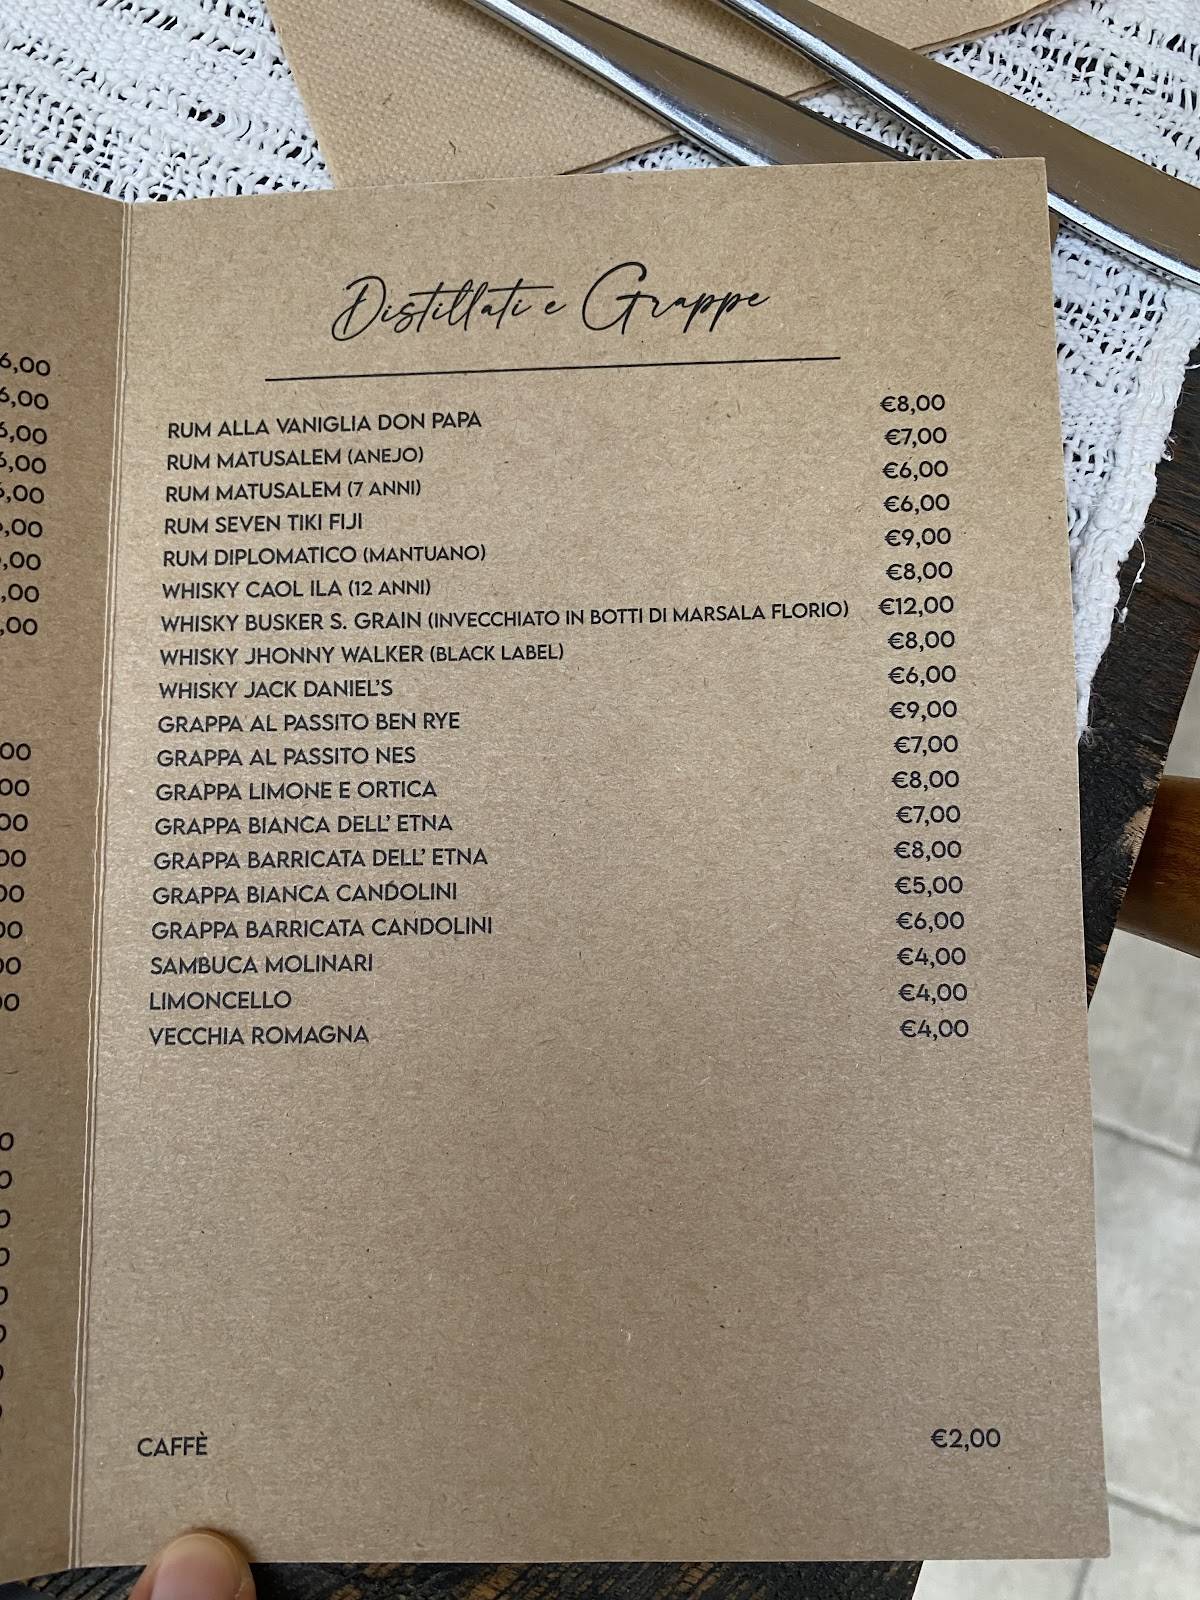 Distillati e Grappe
RUM ALLA VANIGLIA DON PAPA €8,00
RUM MATUSALEM (ANEJO) €7,00
RUM MATUSALEM (7 ANNI) €6,00
RUM SEVEN TIKI FIJI €6,00
RUM DIPLOMATICO (MANTUANO) €9,00
WHISKY CAOL ILA (12 ANNI) €8,00
WHISKY BUSKER S. GRAIN (INVECCHIATO IN BOTTI DI MARSALA FLORIO) €12,00
WHISKY JHONNY WALKER (BLACK LABEL) €8,00
WHISKY JACK DANIEL'S €6,00
GRAPPA AL PASSITO BEN RYE €9,00
GRAPPA AL PASSITO NES €7,00
GRAPPA LIMONE E ORTICA €8,00
GRAPPA BIANCA DELL' ETNA €7,00
GRAPPA BARRICATA DELL' ETNA €8,00
GRAPPA BIANCA CANDOLINI €5,00
GRAPPA BARRICATA CANDOLINI €6,00
SAMBUCA MOLINARI €4,00
LIMONCELLO €4,00
VECCHIA ROMAGNA €4,00
CAFFÈ €2,00